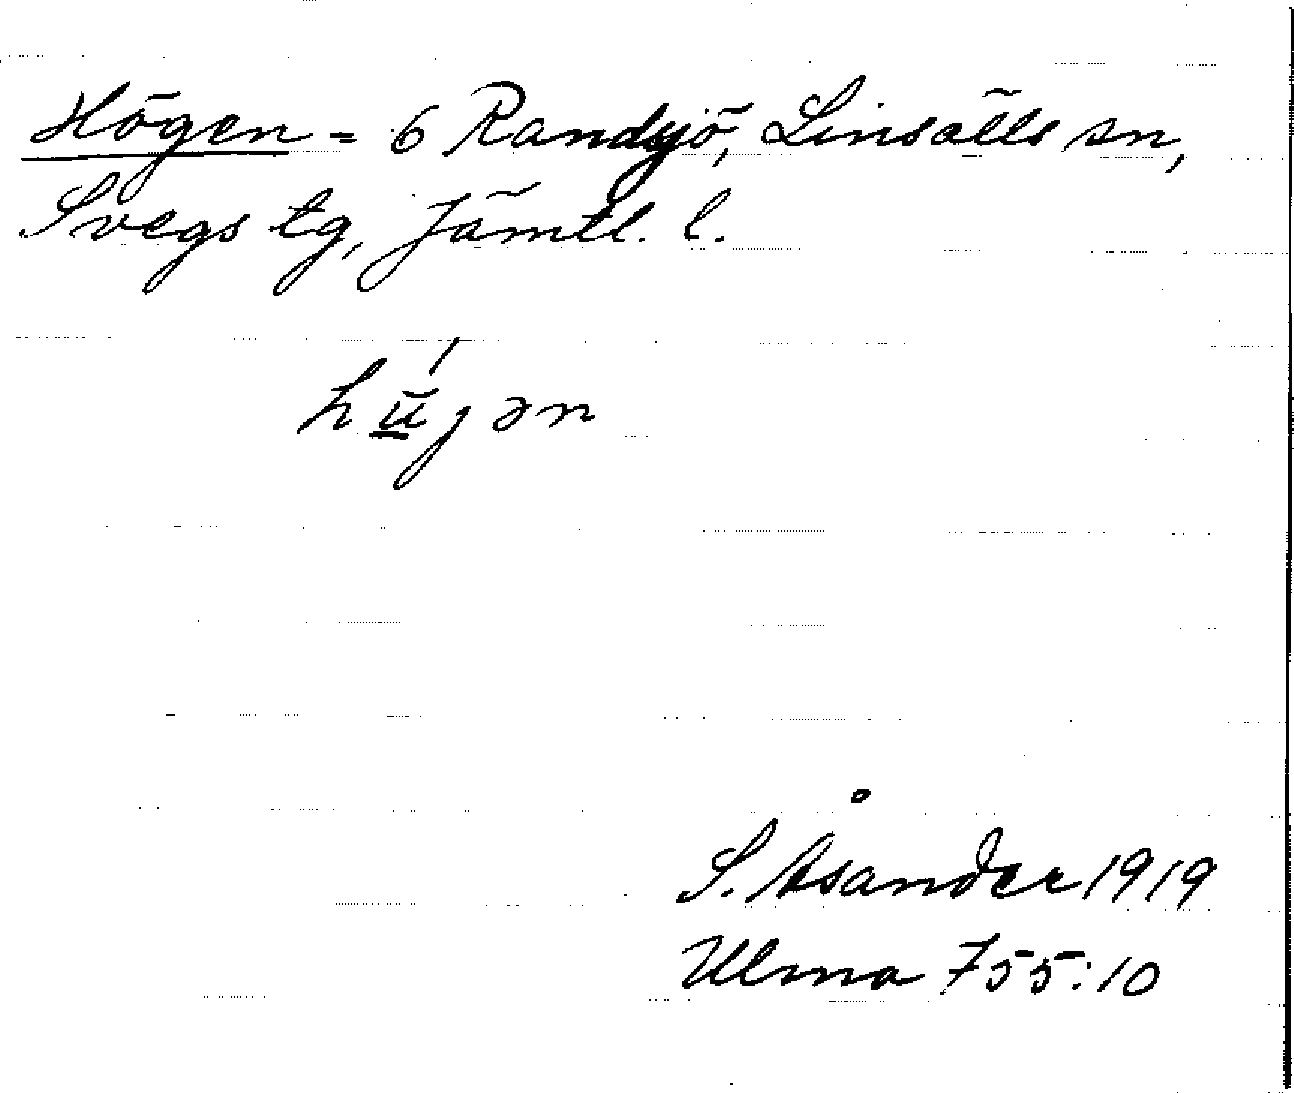 Högen = 6 Randsjö, Linsälls sn,
Svegs tg, Jämtl. l.
hú̲̈jən
S. Åsander 1919
Ulma 755:10